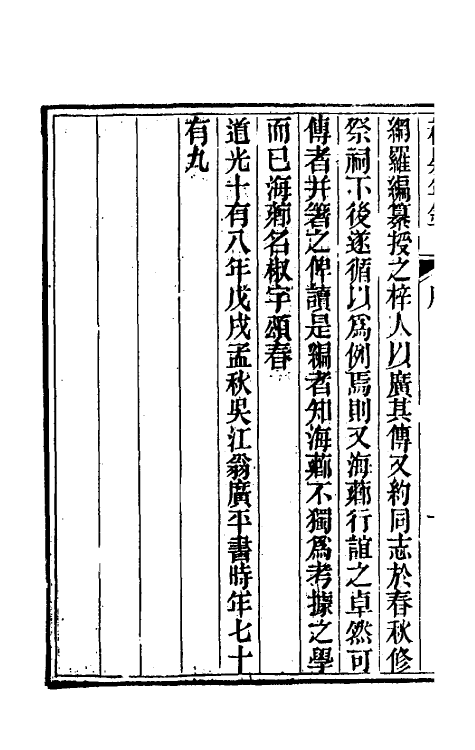 網羅編纂授之梓人以廣其傳又約同志於春秋修
祭祠下後遂循以爲例焉則又海薌行誼之卓然可
傳者并著之俾讀是編者知海薌不獨爲考據之學
而已海薌名椒字頌春
道光十有八年戊戌孟秋吳江翁廣平書時年七十
有九